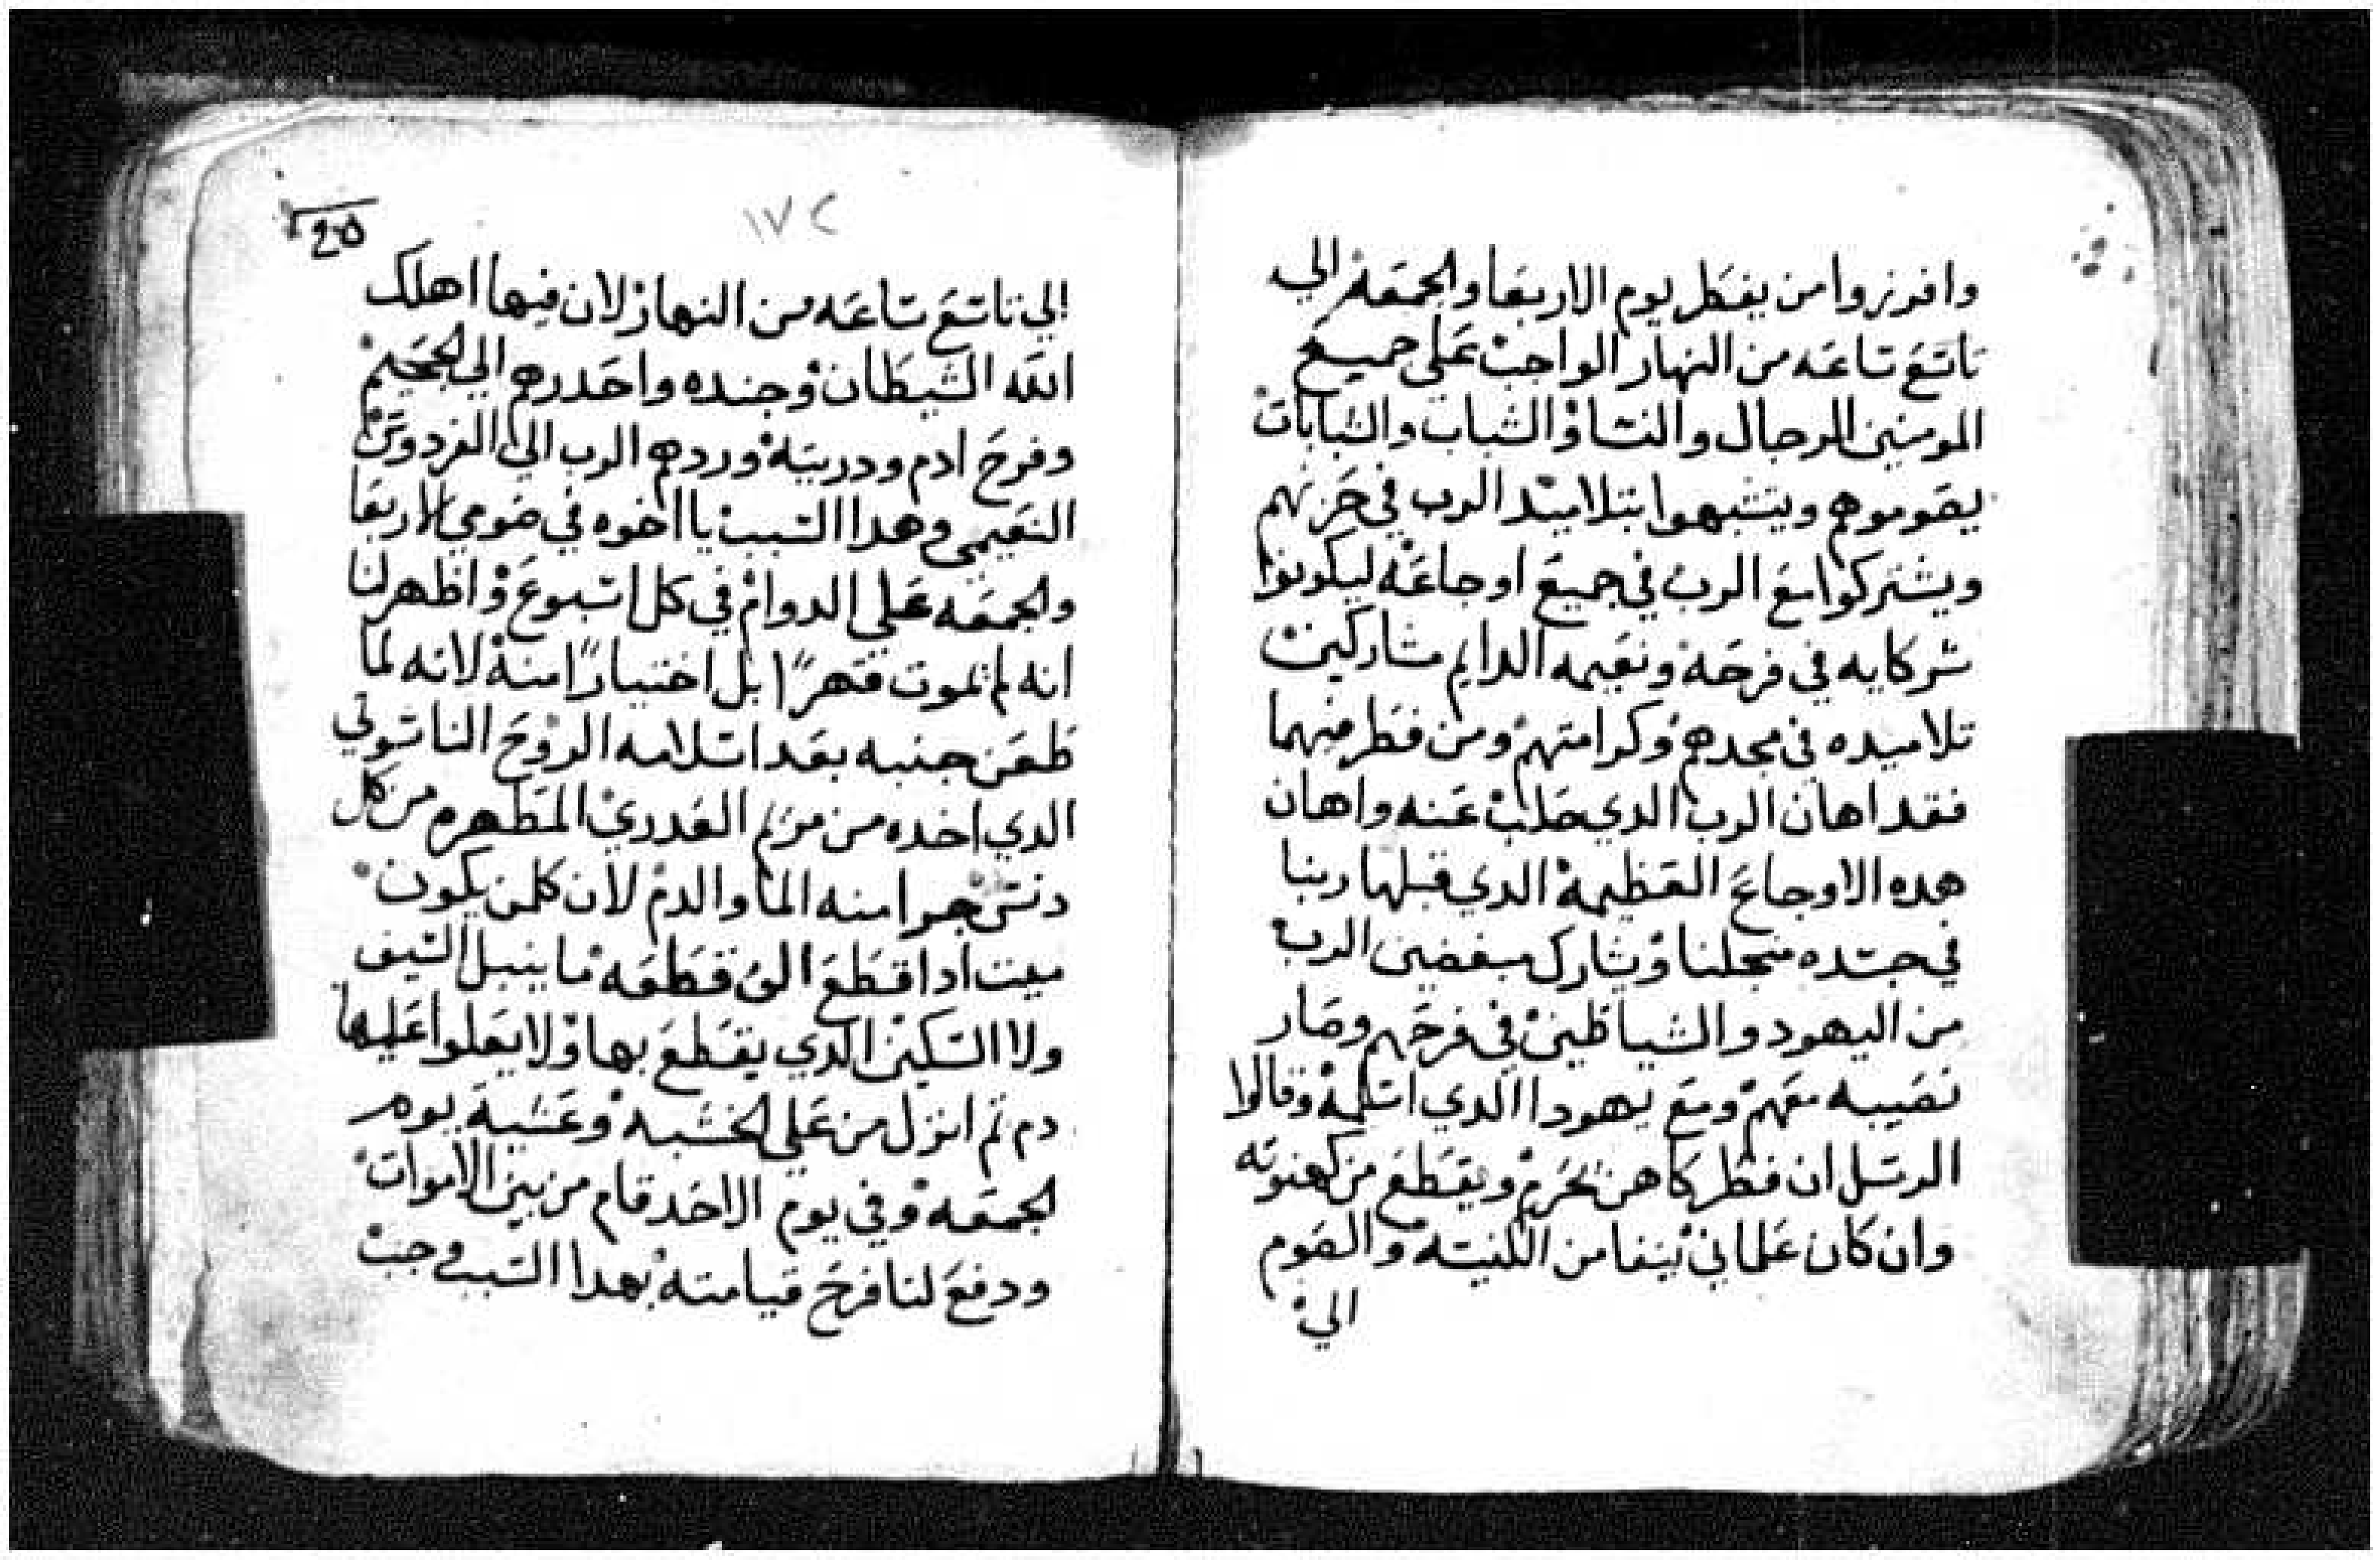 وافرزوا من يفطر يوم الاربعا والجمعه الي
تاسع ساعه من النهار الواجب علي جميع
المومنين الرجال والنسا والشباب والشابات
يصوموهم ويتشبهوا بتلاميد الرب في حزنهم
ويشتركوا مع الرب في جميع اوجاعه ليكونوا
شركايه في فرحه ونعيمه الدايم مشاركين
تلاميده في مجدهم وكرامتهم ومن فطر فيهما
فقد اهان الرب الدي صلب عنه واهان
هده الاوجاع العظيمة الدي قبلها ربنا
في جسده منجلنا ويشارك مبغضين الرب
من اليهود والشياطين في فرحهم وصار
نصيبه معهم ومع يهودا الدي اسلمه وقالوا
الرسل ان فطر كاهن يحرم ويقطع من كهنوته
وان كان علماني ينفا من الكنيسه والصوم
الي
١٧٢
25
الي تاسع ساعه من النهار لان فيها اهلك
الله الشيطان وجنده واحدرهم الي الجحيم
وفرح ادم ودريته وردهم الرب الي الفردوس
النعيم وهدا السبب يا اخوه في صومي الاربعا
والجمعه علي الدوام في كل اسبوع واظهر لنا
انه لم يموت قهرًا بل اختيارًا منه لانه لما
طعن جنبه بعد اسلامه الروح الناسوتي
الدي اخده من مريم العدري المطهره من كل
دنس جرا منه الما والدم لان كلمن يكون
ميت ادا قطع الف قطعه ما ينبل السيف
ولا السكين الدي يقطع بها ولا يعلوا عليها
دم تم انزل من علي الخشبه وعشية يوم
الجمعه وفي يوم الاحد قام من بين الاموات
ودفع لنا فرح قيامته بهدا السبب وجب